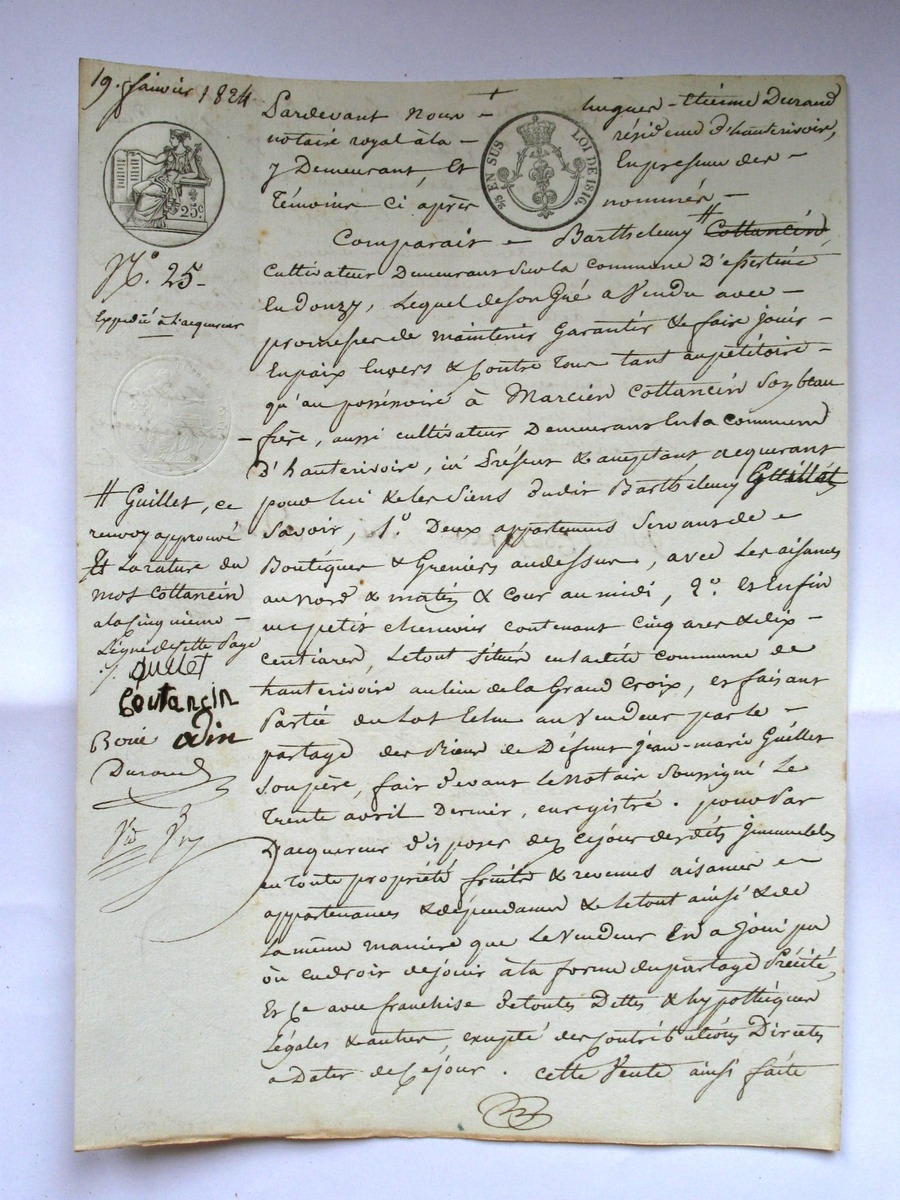 19. Janvier 1824
Pardevant Nous - hugues - Etienne Durand
notaire royal à la - résidence d'hauterivoire,
y Demeurant, Et En presence des -
Témoins Ci après nommés -
25 EN SUS LOI DE 1816.
25c
Comparait - Barthelemy # Cottancin
Cultivateur Demeurant Sur la commune D'essertine
En donzy, Lequel de Son Gré a Vendu avec -
promesse de maintenir Garantir & faire Jouir -
En paix Envers & Contre Tous tant au pétitoire -
qu'au possessoire à Marcien Cottancin Son beau
- frère, aussi cultivateur Demeurant En la commune
D'hauterivoire, ici Présent & acceptant acquerant
pour lui & les Siens dudit Barthélemy Guillet
Savoir, 1.o Deux appartemens Servans de -
Boutiques & Greniers au dessus, avec Les aisances
au nord & matin & Cour au midi, 2.o et Enfin
un petit chenevier contenant Cinq ares & dix -
centiares, Le tout Situés en la dite commune de
hauterivoire au lieu de la Grand Croix, et faisant
Partie du Lot Echu au Vendeur par le -
partage des Biens de Défunt Jean-marie Guillet
Son père, fait devant le Notaire Soussigné Le
Trente avril Dernier, enregistré. pour Par
L'acquereur disposer dez ce jour desdits Immeubles
en toute propriété fruits & revenus aisances -
appartenances & dépendances & le tout ainsi & de
La même maniere que Le Vendeur En a Joui pu
ou eu droit de jouir à la forme du partage Précité,
Et Ce avec franchise de toutes Dettes & hypothèques
Légales & autres, excepté des Contributions Directes
a Dater de Ce jour. Cette Vente ainsi faite
N.o 25 -
Expedié à L'acquereur
# Guillet, ce
renvoy approuvé
Et La rature du
mot Cottancin
a la Cinquième -
Ligne de cette Page
./. Guillet
Coutancin
Durand